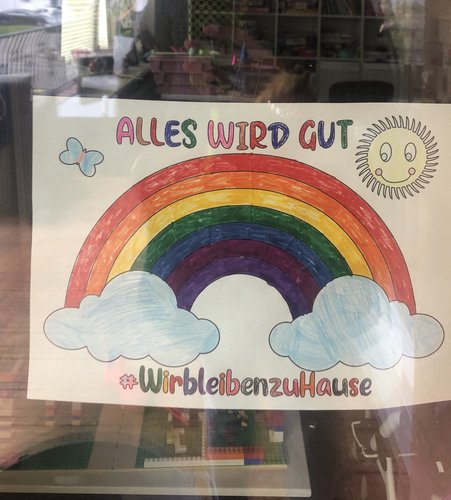 ALLES WIRD GUT
#WirbleibenzuHause